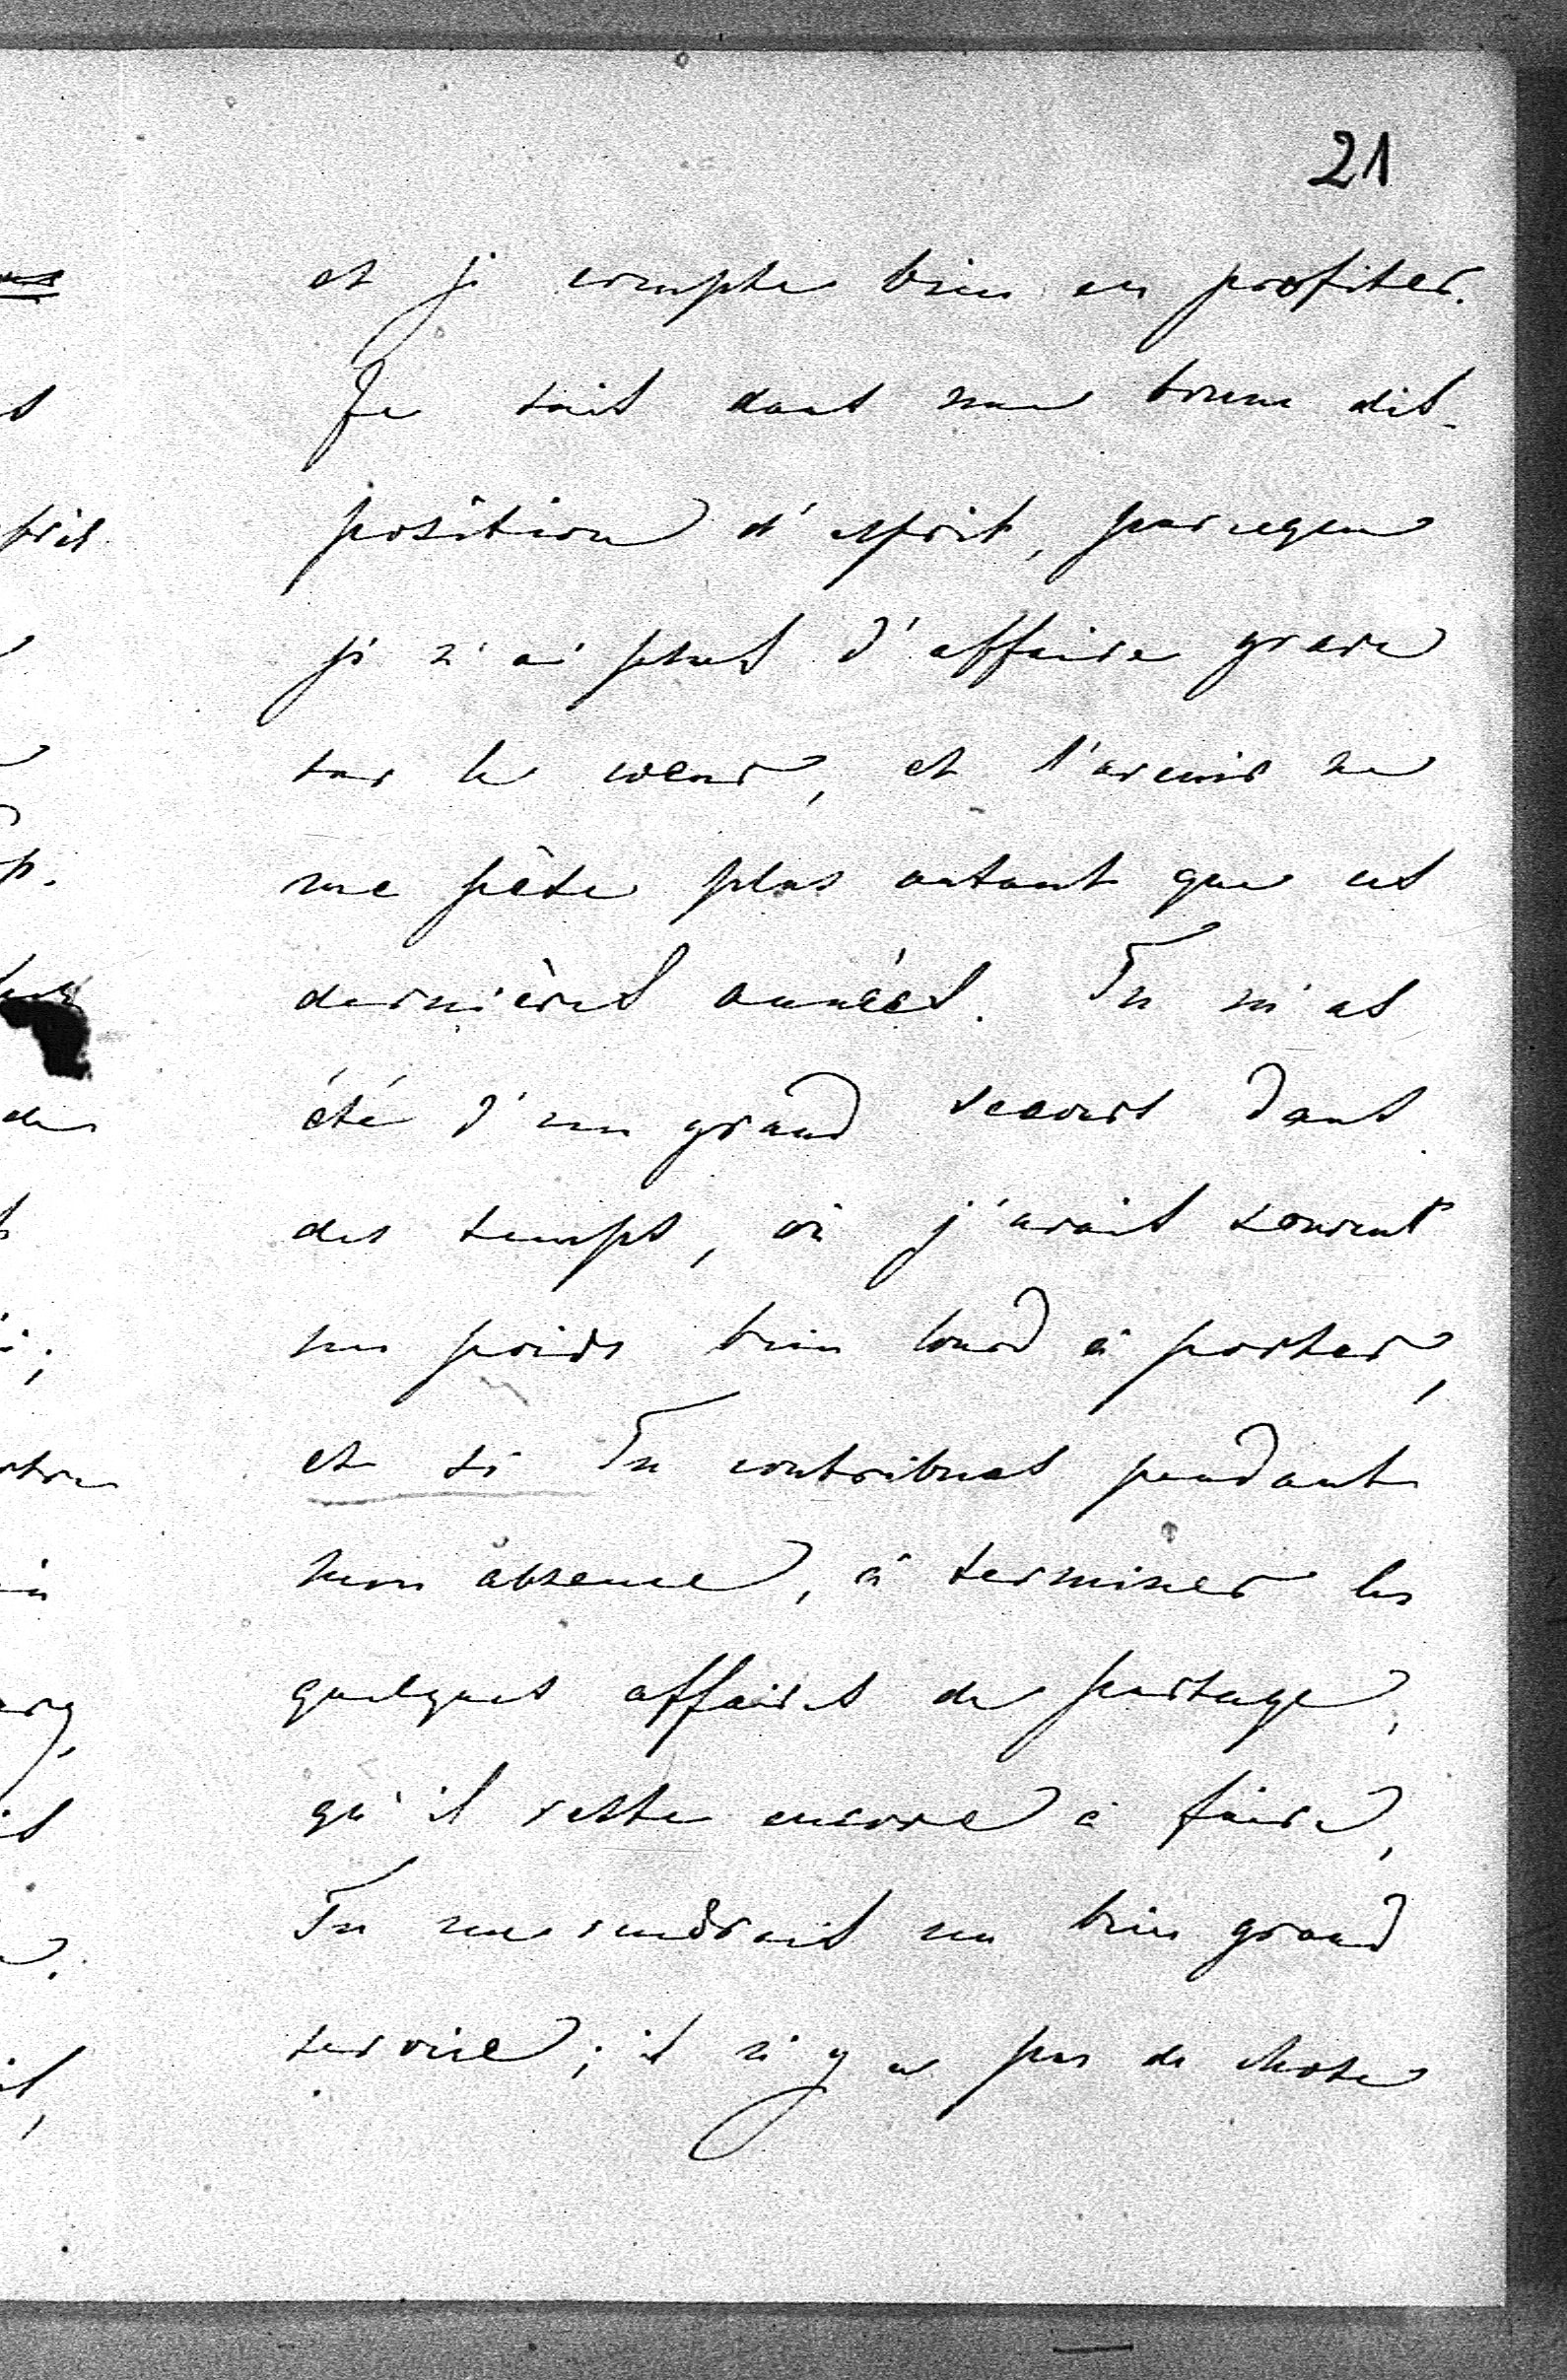 21
et je compte bien en profiter.
Je suis dans une bonne dis-
position d'esprit, parceque
je n'ai plus d'affaire grave
sur le coeur, et l'avenir ne
me pèse plus autant que ces
dernières années. Tu m'as
été d'un grand secours dans
des temps, où j'avais souvent
un poids bien lourd à porter,
et si Tu contribues pendant
mon absence, à terminer les
quelques affaires de partage,
qu'il reste encore à faire,
Tu me rendrais un bien grand
service; il n'y a pas de chose